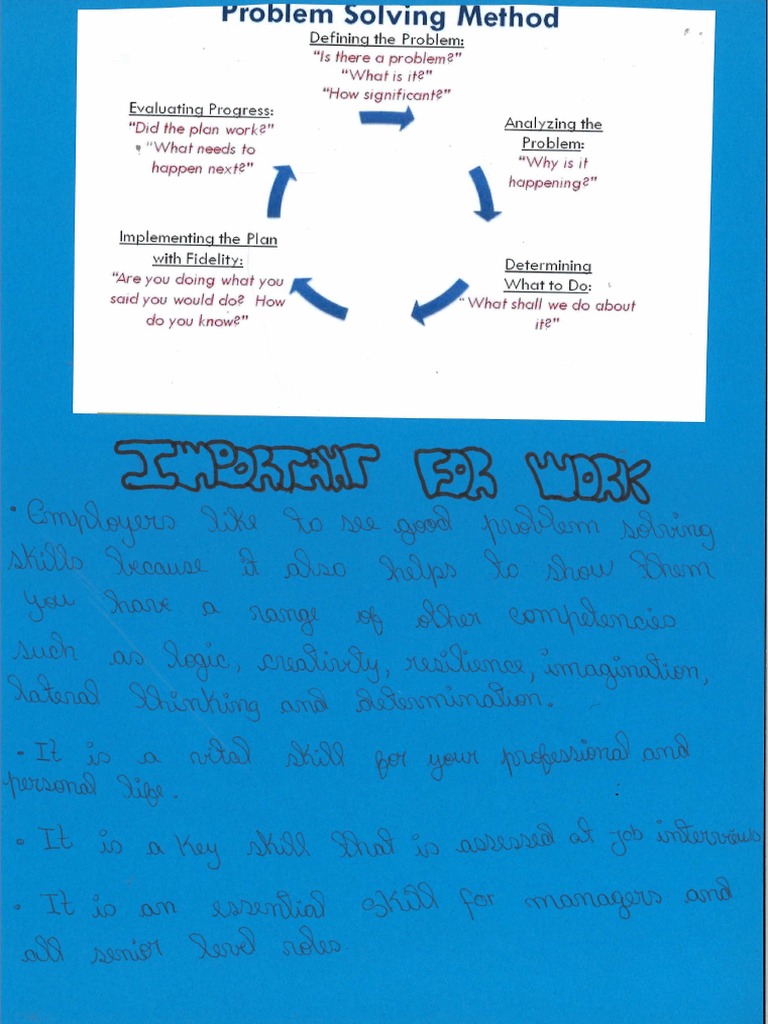 Problem Solving Method
Defining the Problem:
"Is there a problem?"
"What is it?"
"How significant?"
Analyzing the
Problem:
"Why is it
happening?"
Determining
What to Do:
"What shall we do about
it?"
Implementing the Plan
with Fidelity:
"Are you doing what you
said you would do? How
do you know?"
Evaluating Progress:
"Did the plan work?"
"What needs to
happen next?"
IMPORTANT FOR WORK
• Employers like to see good problem solving
skills because it also helps to show them
you have a range of other competencies
such as logic, creativity, resilience, imagination,
lateral thinking and determination.
• It is a vital skill for your professional and
personal life.
• It is a key skill that is assessed at job interviews
• It is an essential skill for managers and
all senior level roles.